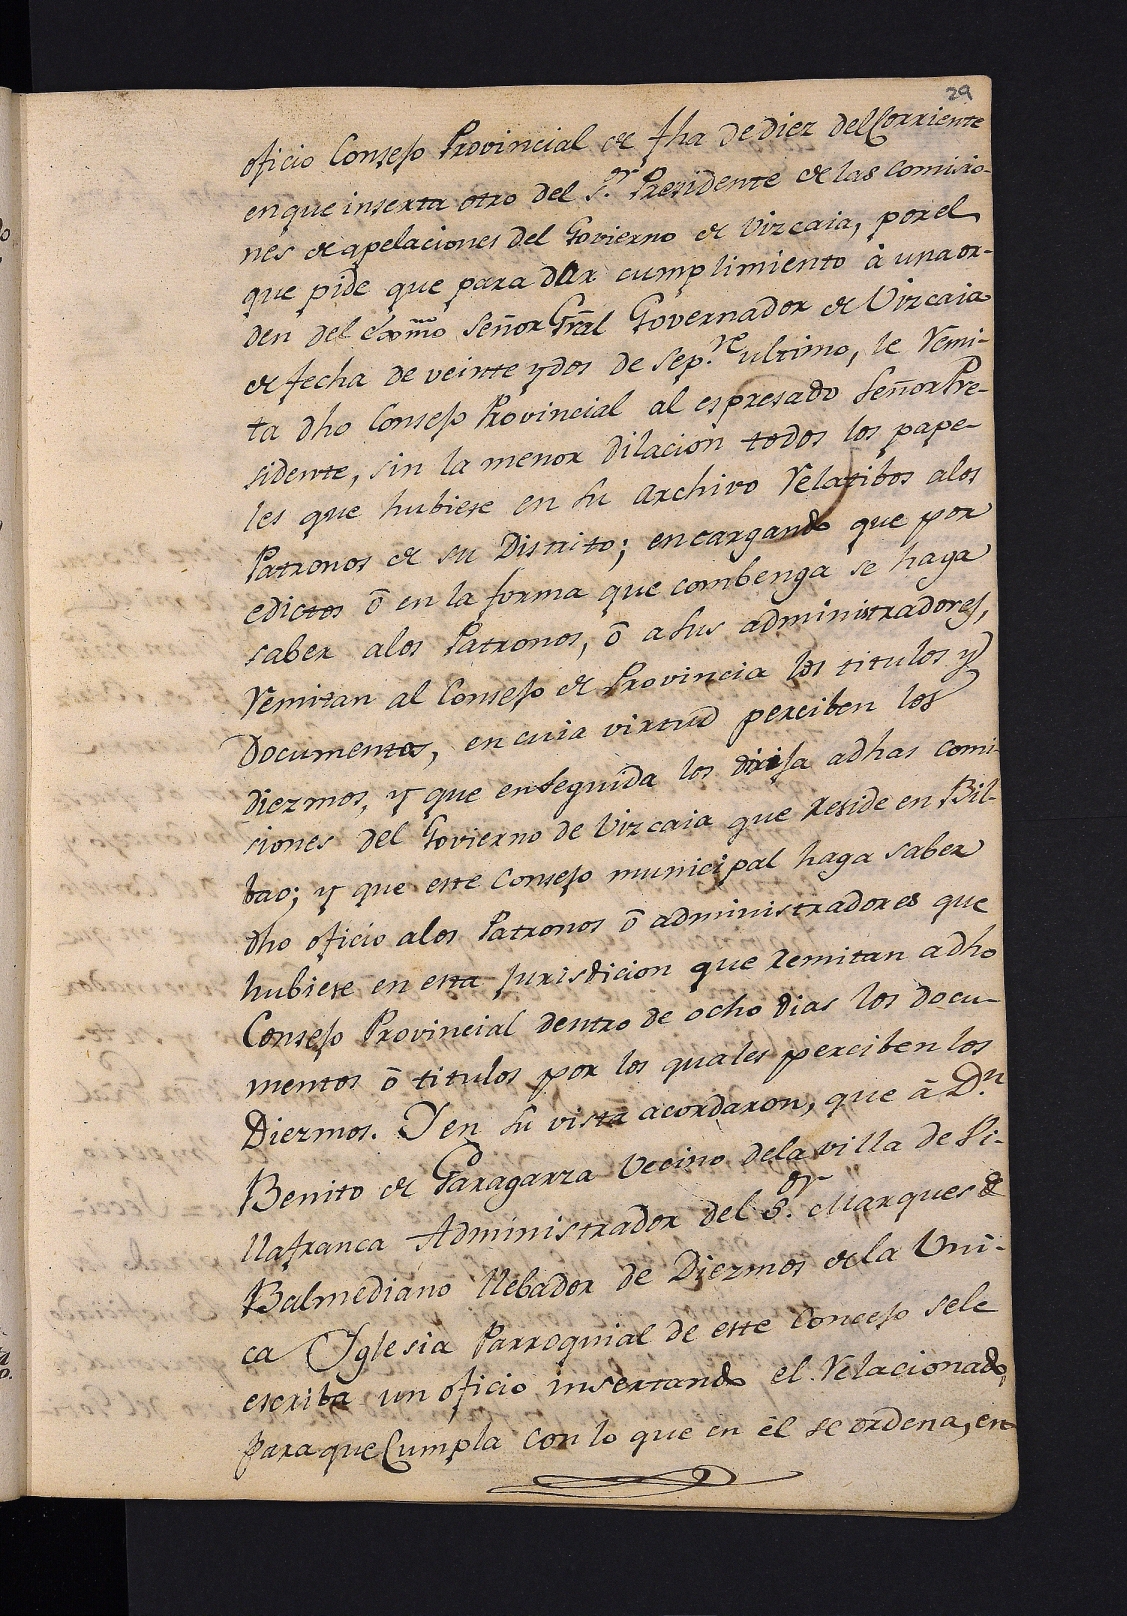 29
oficio Consejo Provincial de fha de diez del Corriente
en que inserta otro del S.or Presidente de las comisio-
nes de apelaciones del Govierno de Vizcaia, por el
que pide que para dar cumplimiento à una or-
den del Exmo Señor Gral Governador de Vizcaia
de fecha de veinte y dos de Sep.re ultimo, le Remi-
ta dho Consejo Provincial al espresado Señor Pre-
sidente, sin la menor dilacion todos los pape-
les que hubiese en su archivo Relatibos alos
Patronos de su Distrito; encargando que por
edictos ò en la forma que combenga se haga
saber alos Patronos, ò a sus administradores,
Remitan al Consejo de Provincia los titulos y
Documentos, en cuia virtud perciben los
diezmos, y que enseguida los dirija adhas comi-
siones del Govierno de Vizcaia que Reside en Bil-
bao; y que este Consejo municipal haga saber
dho oficio alos Patronos ò administradores que
hubiese en esta Jurisdicion que Remitan adho
Consejo Provincial dentro de ocho dias los docu-
mentos ò titulos por los quales perciben los
Diezmos. Y en su vista acordaron, que à D.n
Benito de Garagarza Vecino dela villa de Vi-
llafranca Administrador del S.or Marques de
Balmediano llebador de Diezmos de la Uni-
ca Yglesia Parroquial de este Concejo sele
escriba un oficio insertando el Relacionado,
para que Cumpla con lo que en él se ordena, en